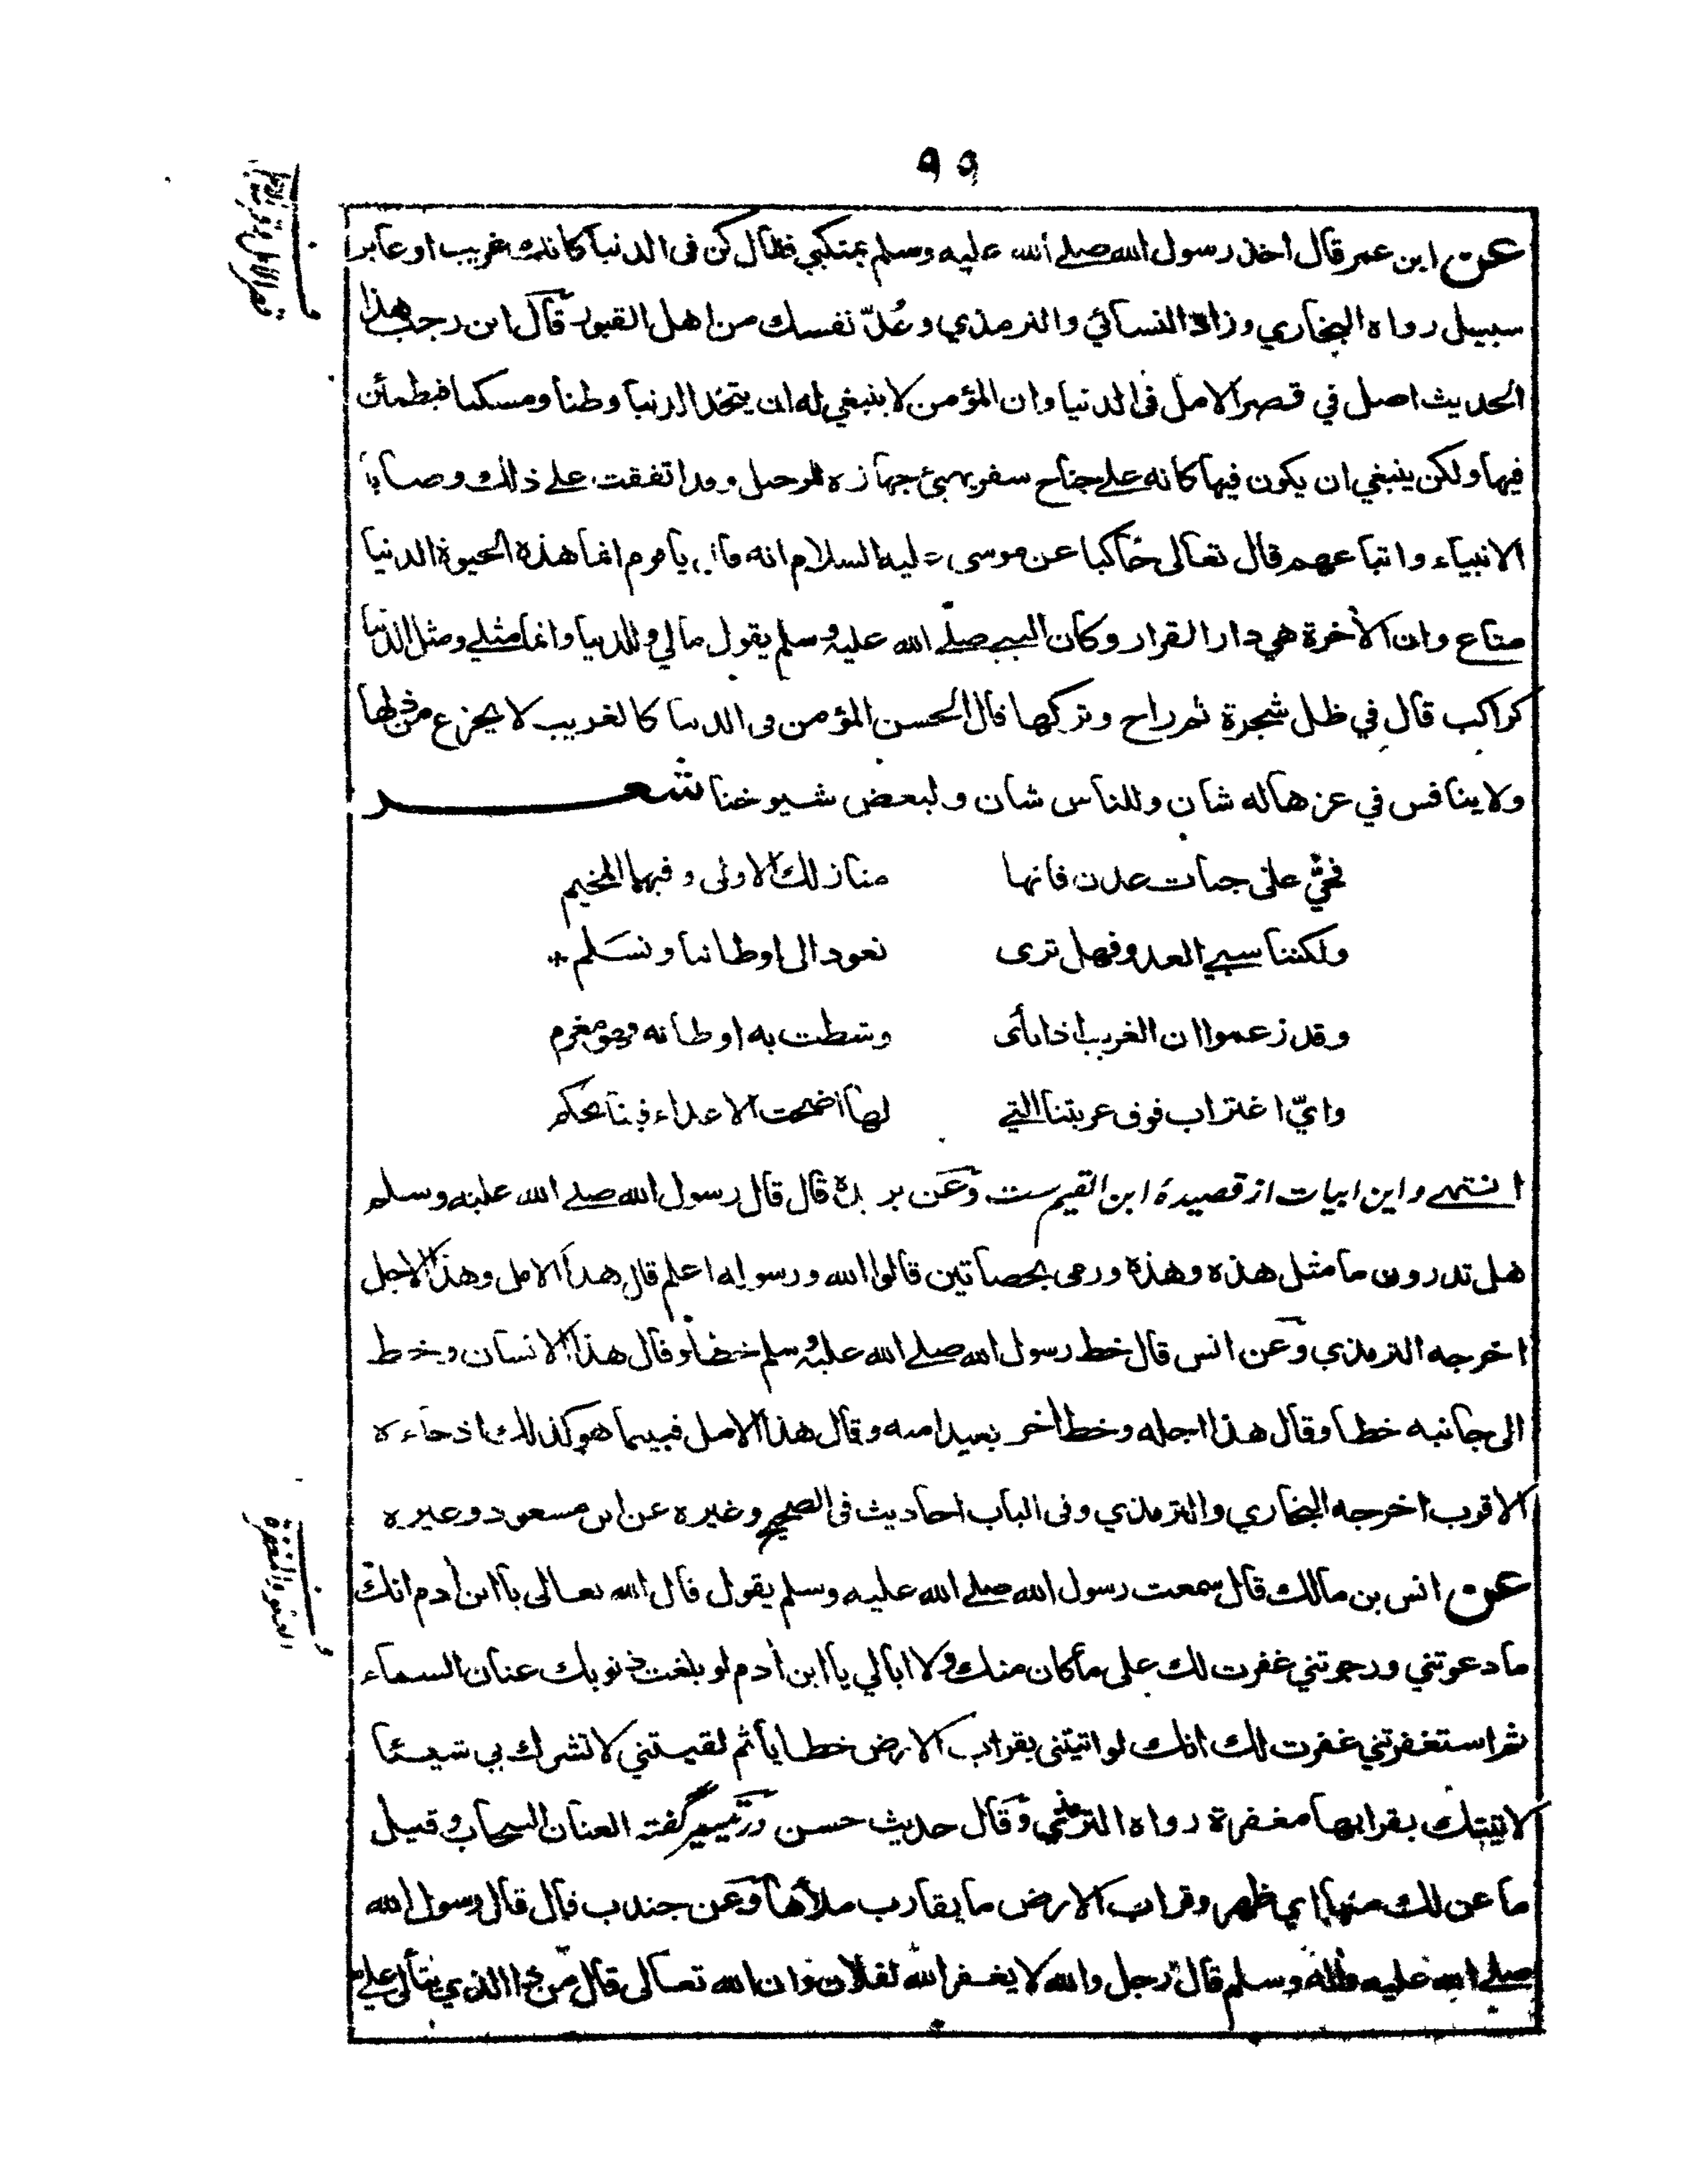 ۹۹
عن ابن عمر قال اخذ رسول الله صلے الله عليه وسلم بمنكبي فقال كن فى الدنيا كانك غريب او عابر
سبيل رواه البخاري وزاد النسائي والترمذي وعُدّ نفسك من اهل القبور قال ابن رجب هذا
الحديث اصل في قصر الامل فى الدنيا وان المؤمن لا ينبغي له ان يتخذ الدنيا وطنا ومسكنا فيطمأن
فيها ولكن ينبغي ان يكون فيها كانه علے جناح سفر يهيئ جهازه للرحيل وقد اتفقت علے ذلك وصايا
الانبياء واتباعهم قال تعالى حاكيا عن موسى عليه السلام انه قال يا قوم انما هذه الحيوة الدنيا
متاع وان الأخرة هي دار القرار وكان النبي صلے الله عليه وسلم يقول مالي وللدنيا وانما مثلي ومثل الدنيا
كراكب قال في ظل شجرة ثم راح وتركها قال الحسن المؤمن فى الدنيا كالغريب لا يجزع من ذلها
ولا ينافس في عزها له شان وللناس شان ولبعض شيوخنا شعر
فحيّ على جنات عدن فانها منازلك الاولى وفيها المخيم
ولكننا سبي العدو فهل ترى نعود الى اوطاننا ونسَلم *
وقد زعموا ان الغريب اذا نأى وشطت به اوطانه وهو مغرم
وايّ اغتراب فوق غربتنا التي لها اضحت الاعداء فينا تحكم
انتهے واين ابيات از قصيدۀ ابن القيم ست وعَن بريدة قال قال رسول الله صلے الله عليه وسلم
هل تدرون ما مثل هذه وهذه ورمى بحصاتين قالوا الله ورسوله اعلم قال هذا الامل وهذا الاجل
اخرجه الترمذي وعن انس قال خط رسول الله صلے الله عليه وسلم خطا وقال هذا الانسان وخط
الى جانبه خطا وقال هذا اجله وخط أخر بعيدا منه وقال هذا الامل فبينما هو كذلك اذ جاءه
الاقرب اخرجه البخاري والترمذي وفى الباب احاديث فى الصحيح وغيره عن ابن مسعود وغيره
عن انس بن مالك قال سمعت رسول الله صلے الله عليه وسلم يقول قال الله تعالى يا ابن أدم انك
ما دعوتني ورجوتني غفرت لك على ما كان منك ولا ابالي يا ابن أدم لو بلغت ذنوبك عنان السماء
ثم استغفرتني غفرت لك انك لو اتيتنى بقراب الارض خطايا ثم لقيتني لا تشرك بي شيئا
لاتيتك بقرابها مغفرة رواه الترمذي وقال حديث حسن در تيسير گفته العنان السحاب وقيل
ما عن لك منها اي ظهر وقراب الارض ما يقارب ملأها وعَن جندب قال قال رسول الله
صلے الله عليه وأله وسلم قال رجل والله لا يغفر الله لفلان وان الله تعالى قال من ذا الذي يتألى علي
ف
العفو والمغفرة